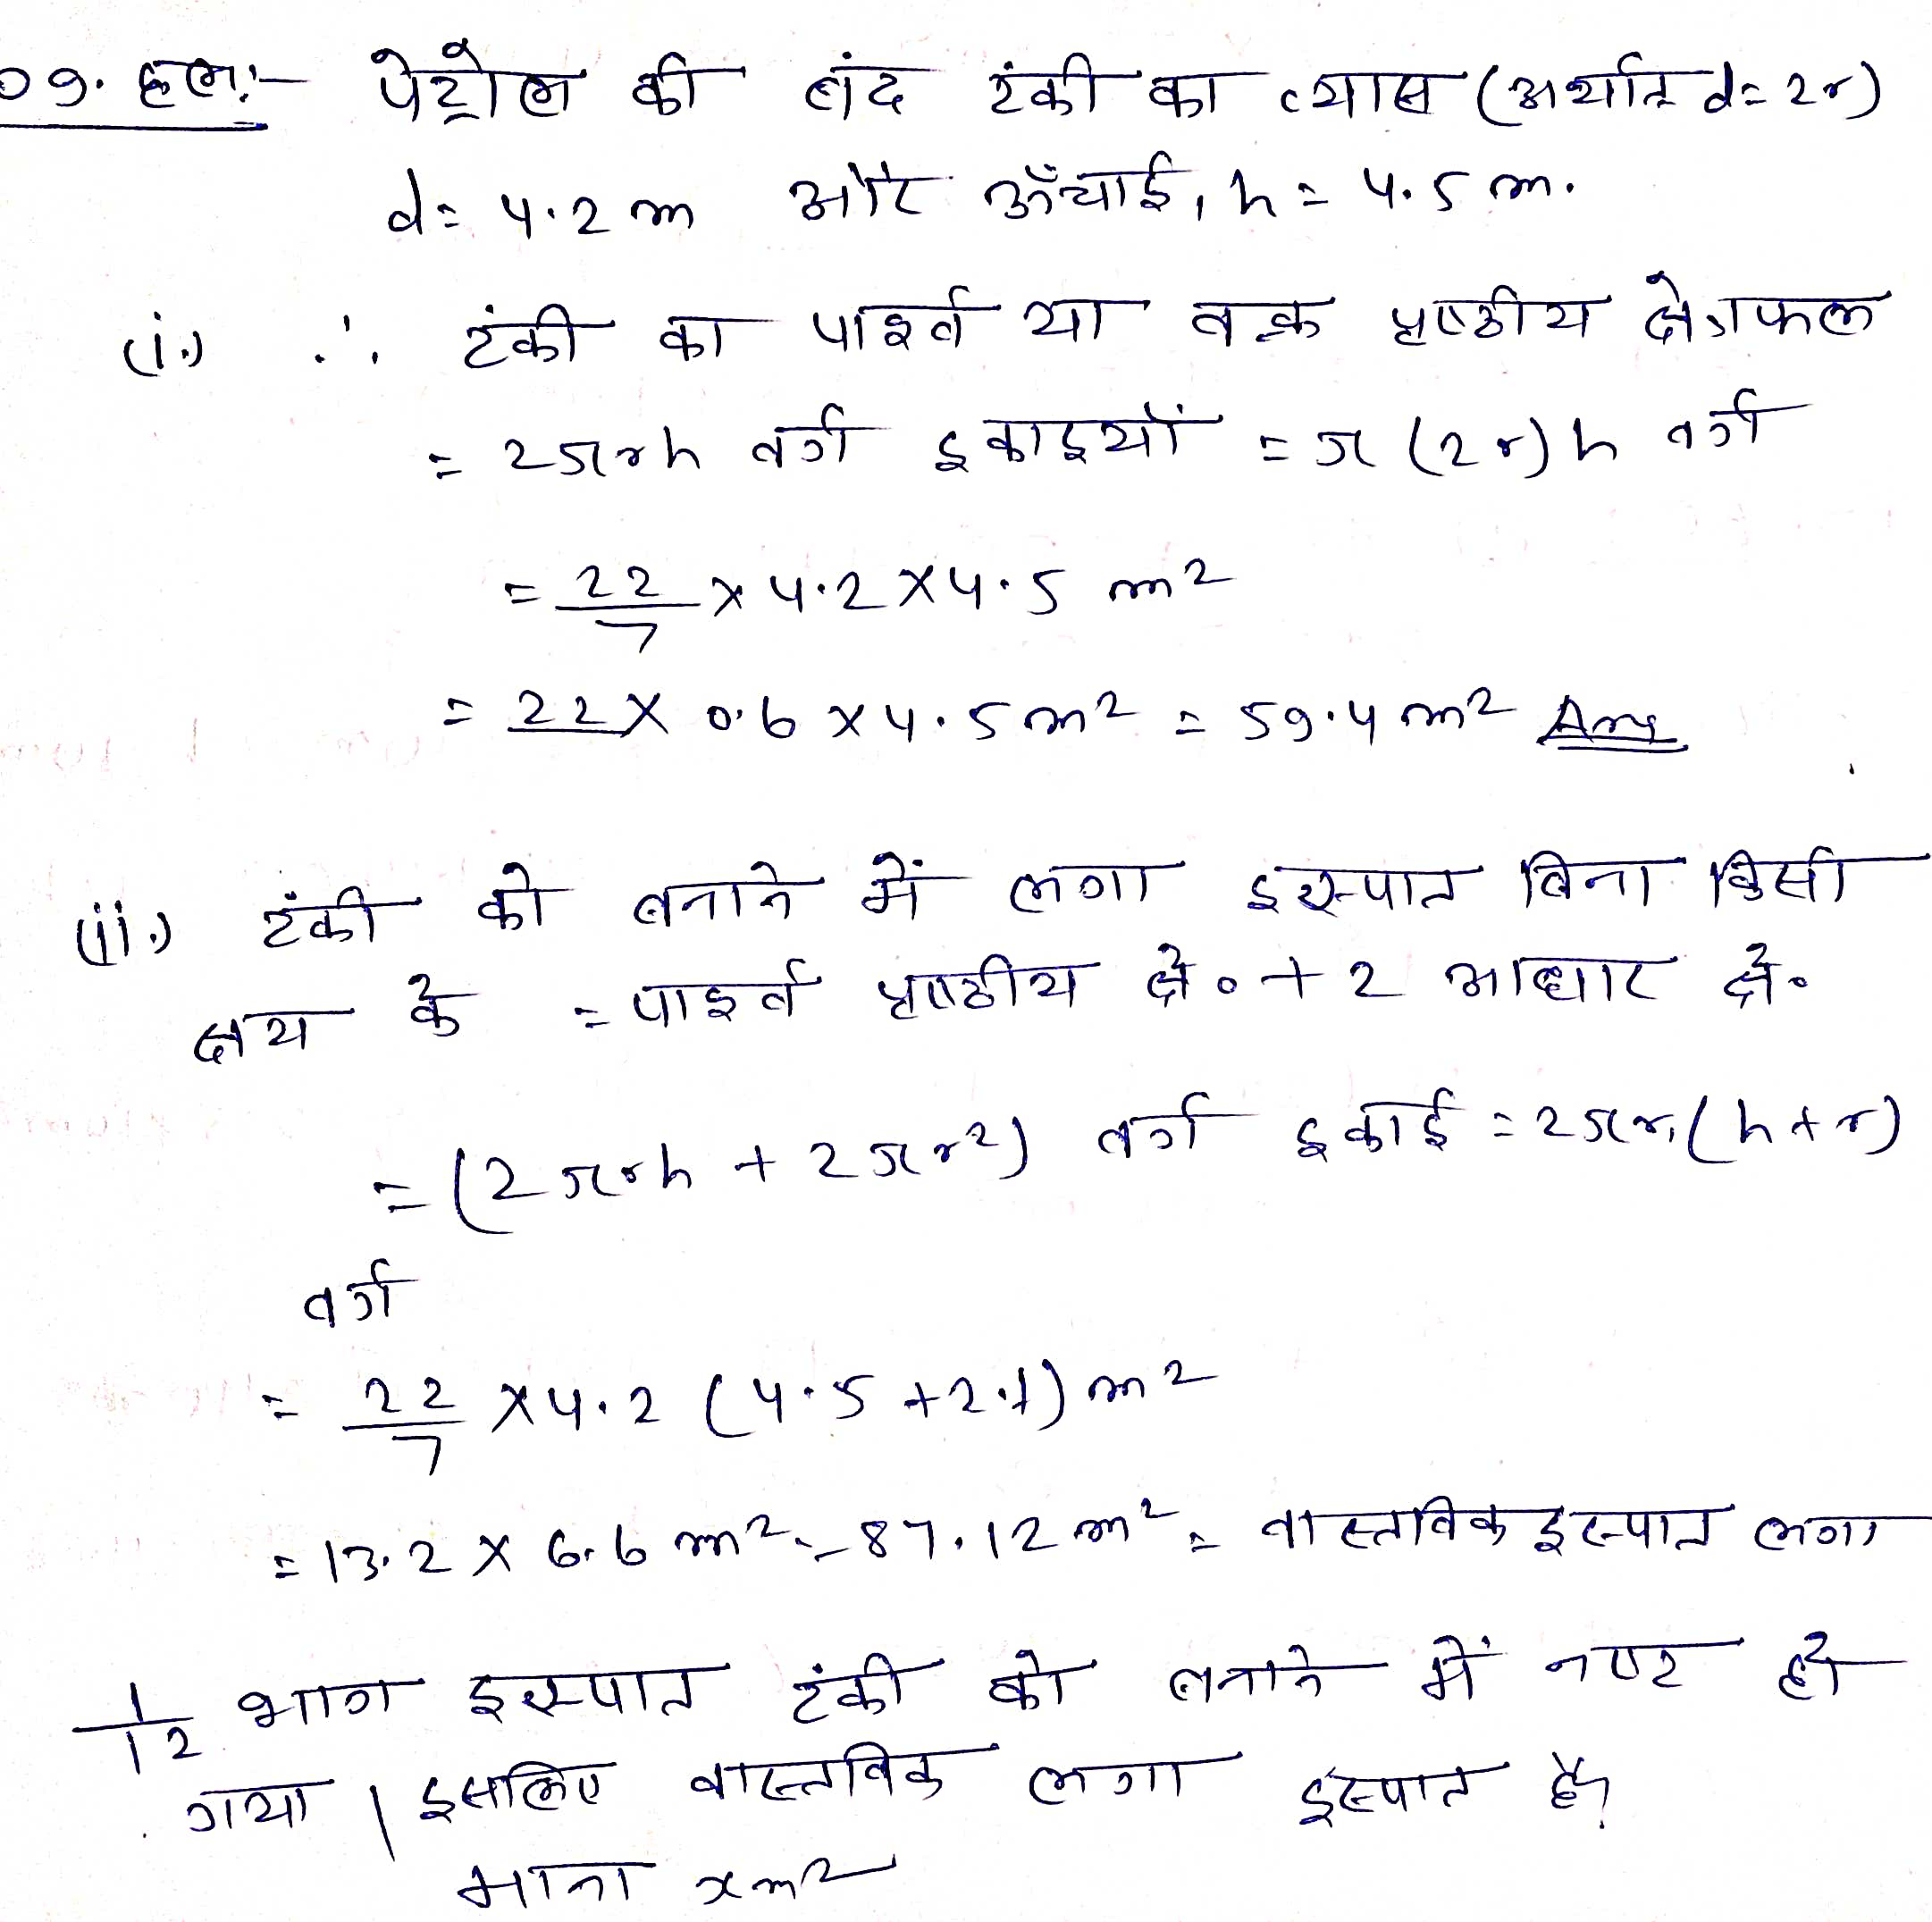 09. हल:- पेट्रोल की बंद टंकी का व्यास (अर्थात d = 2r)
d = 4.2 m और ऊँचाई, h = 4.5 m.
(i.) ∴ टंकी का पार्श्व या वक्र पृष्ठीय क्षेत्रफल
= 2πrh वर्ग इकाइयों = π (2r) h वर्ग
= 22/7 × 4.2 × 4.5 m²
= 22 × 0.6 × 4.5 m² = 59.4 m² Ans
(ii.) टंकी को बनाने में लगा इस्पात बिना किसी
क्षय के = पार्श्व पृष्ठीय क्षे० + 2 आधार क्षे०
= (2πrh + 2πr²) वर्ग इकाई = 2πr (h + r)
वर्ग
= 22/7 × 4.2 (4.5 + 2.1) m²
= 13.2 × 6.6 m² = 87.12 m² = वास्तविक इस्पात लगा
1/12 भाग इस्पात टंकी को बनाने में नष्ट हो
गया | इसलिए वास्तविक लगा इस्पात है
माना x m²